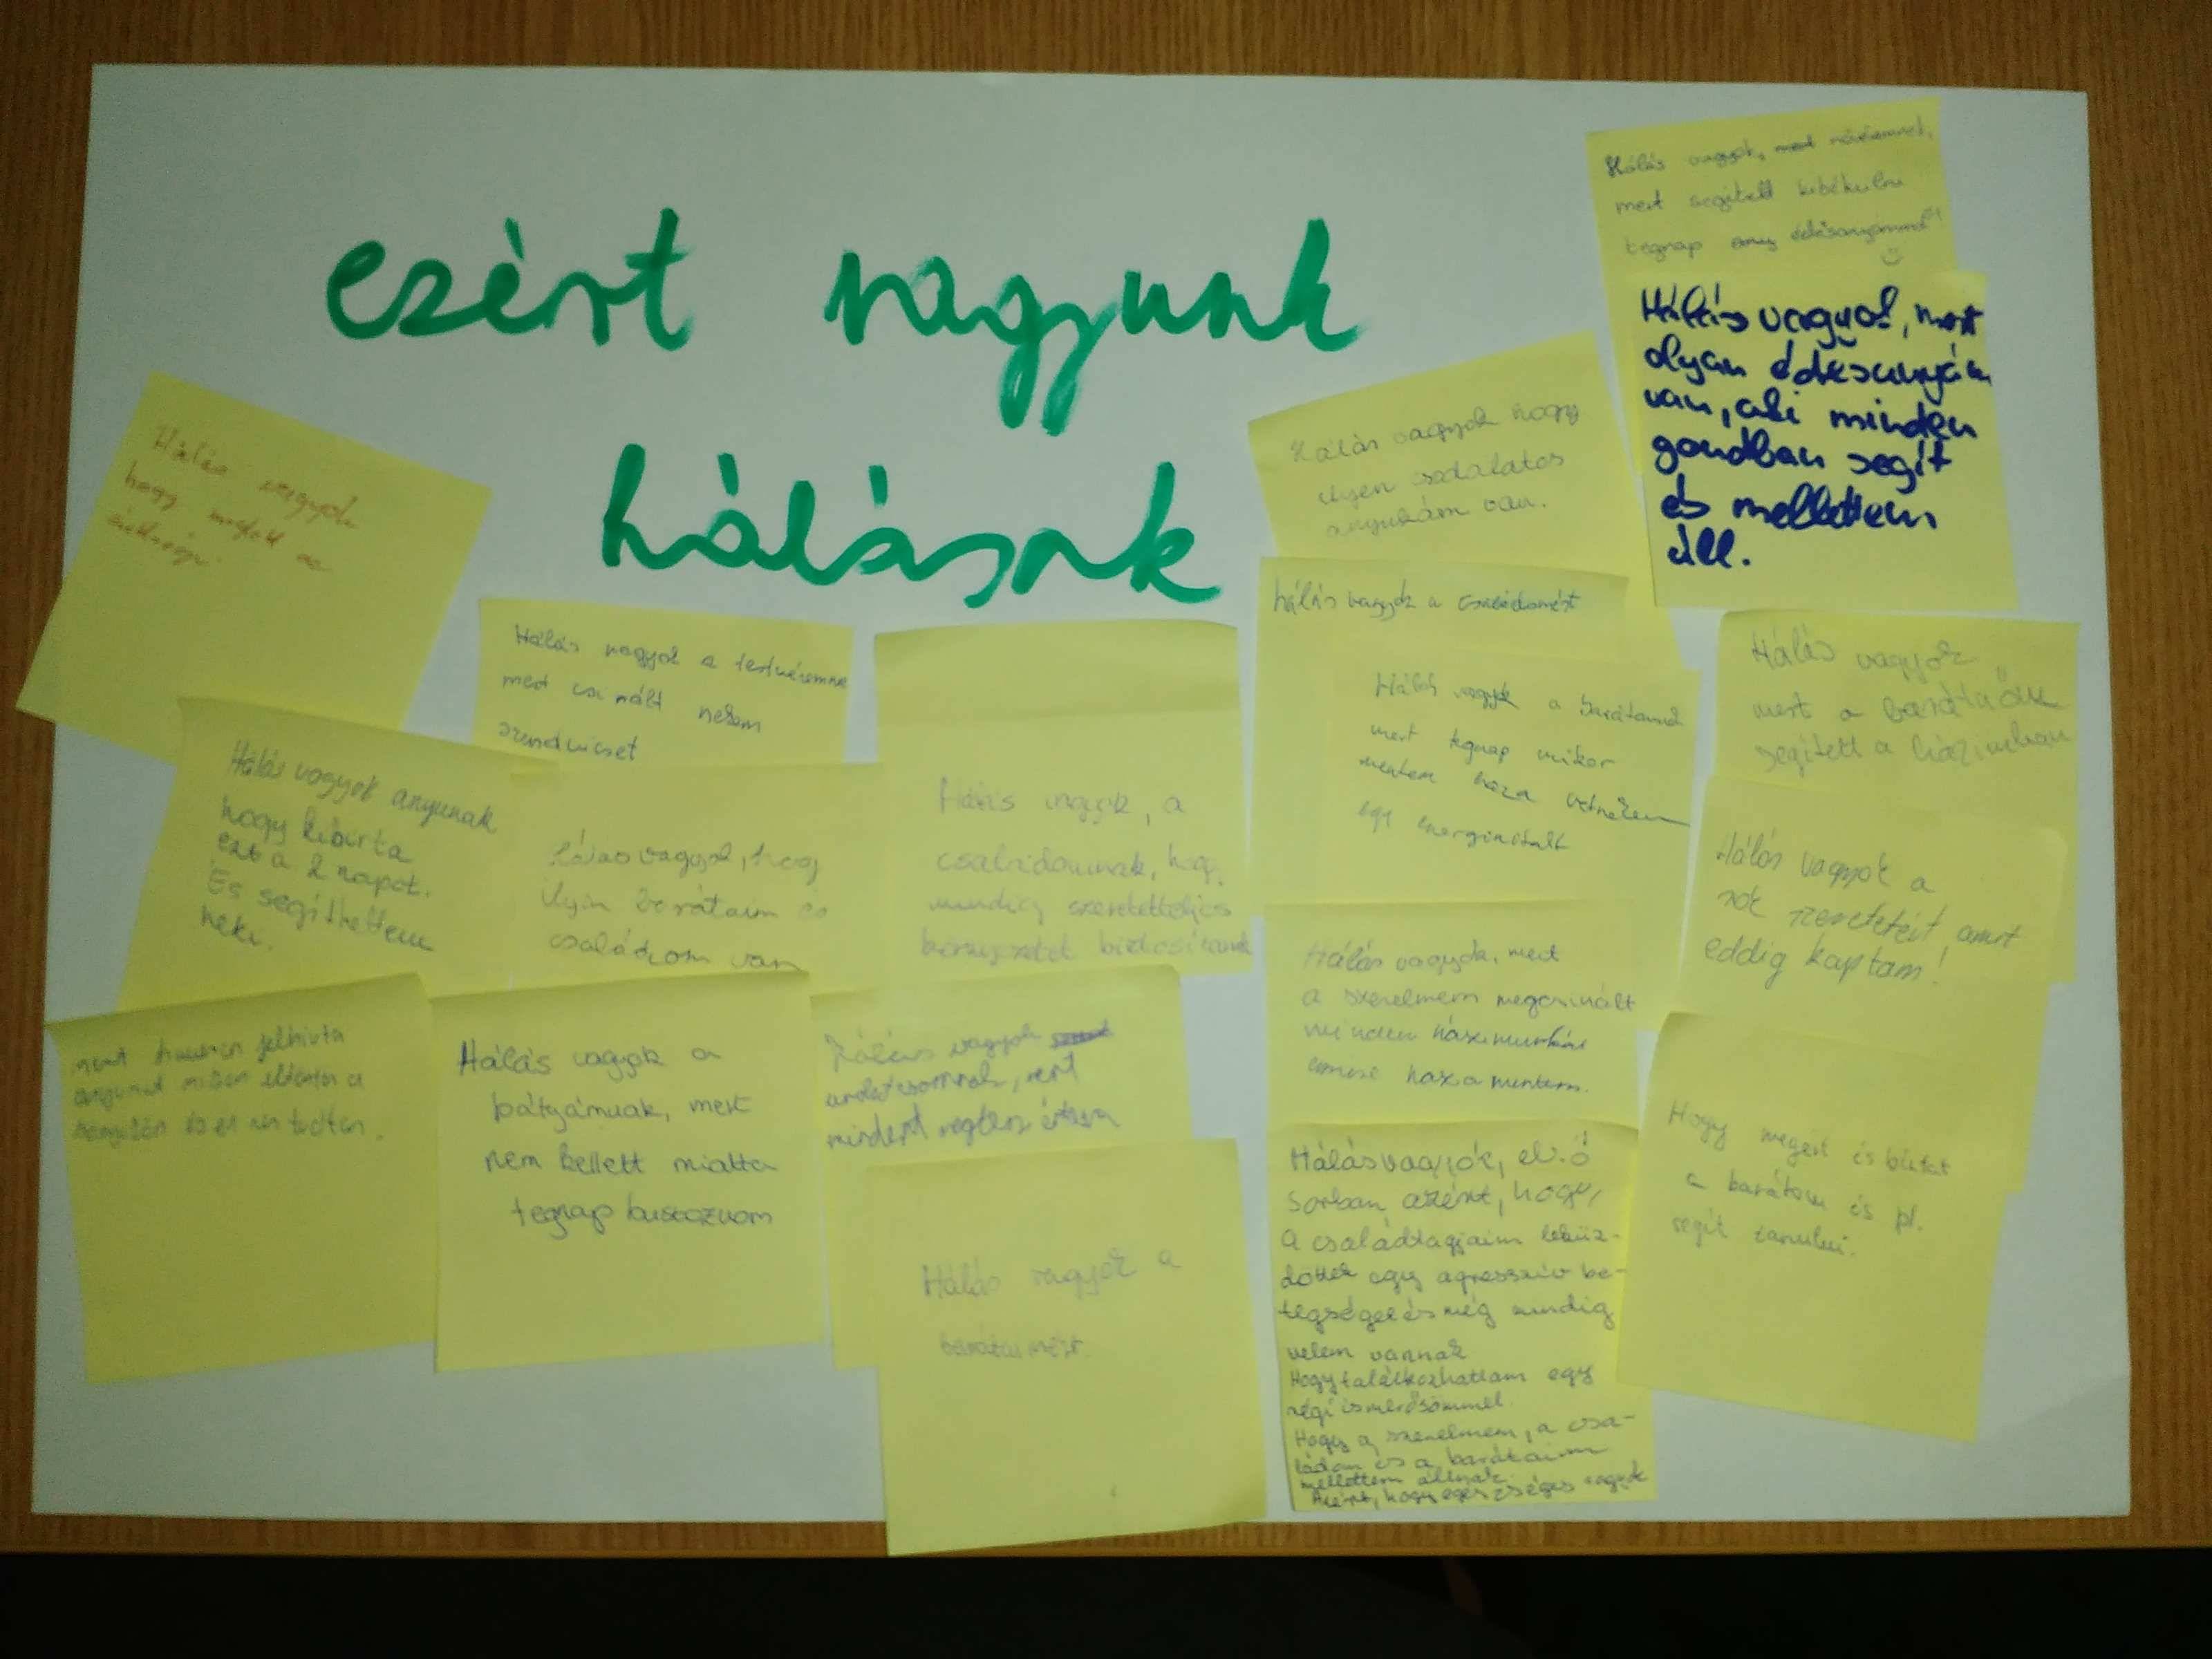 ezért vagyunk
hálásak
Hálás vagyok,
mert segített kibékülni
tegnap édesanyámmal!
Hálás vagyok, mert
olyan édesanyám
van, aki minden
gondban segít
és mellettem
áll.
Hálás vagyok hogy
ilyen csodálatos
anyukám van.
Hálás vagyok
hogy
Hálás vagyok a testvéremnek
mert csinált nekem
szendvicset
hálás vagyok a családomért
Hálás vagyok a barátomnak
mert tegnap mikor
mentem haza vett nekem
egy energiaitalt
Hálás vagyok
mert a barátnőm
segített a házimban
Hálás vagyok anyunak
hogy kibírta
ezt a 2 napot.
És segíthettem
neki.
Hálás vagyok, hogy
ilyen barátaim és
családom van
Hálás vagyok, a
családomnak, hogy
mindig szeretetteljes
környezetet biztosítanak
Hálás vagyok a
sok szeretetért, amit
eddig kaptam!
Hálás vagyok, mert
a szerelmem megcsinált
minden házimunkát
mire haza mentem.
mert felhívta
anyumat
és én nem tudtam.
Hálás vagyok a
bátyámnak, mert
nem kellett miatta
tegnap buszoznom
Hálás vagyok
mert
mindent megtesz értem
Hálás vagyok a
barátaimért.
Hálás vagyok, első
sorban azért, hogy
a családtagjaim leküz-
döttek egy agresszív be-
tegséget és még mindig
velem vannak
Hogy találkozhattam egy
régi ismerősömmel.
Hogy a szerelmem, a csa-
ládom és a barátaim
mellettem állnak
Azért, hogy egészséges vagyok
Hogy megért és biztat
a barátom és pl.
segít tanulni.